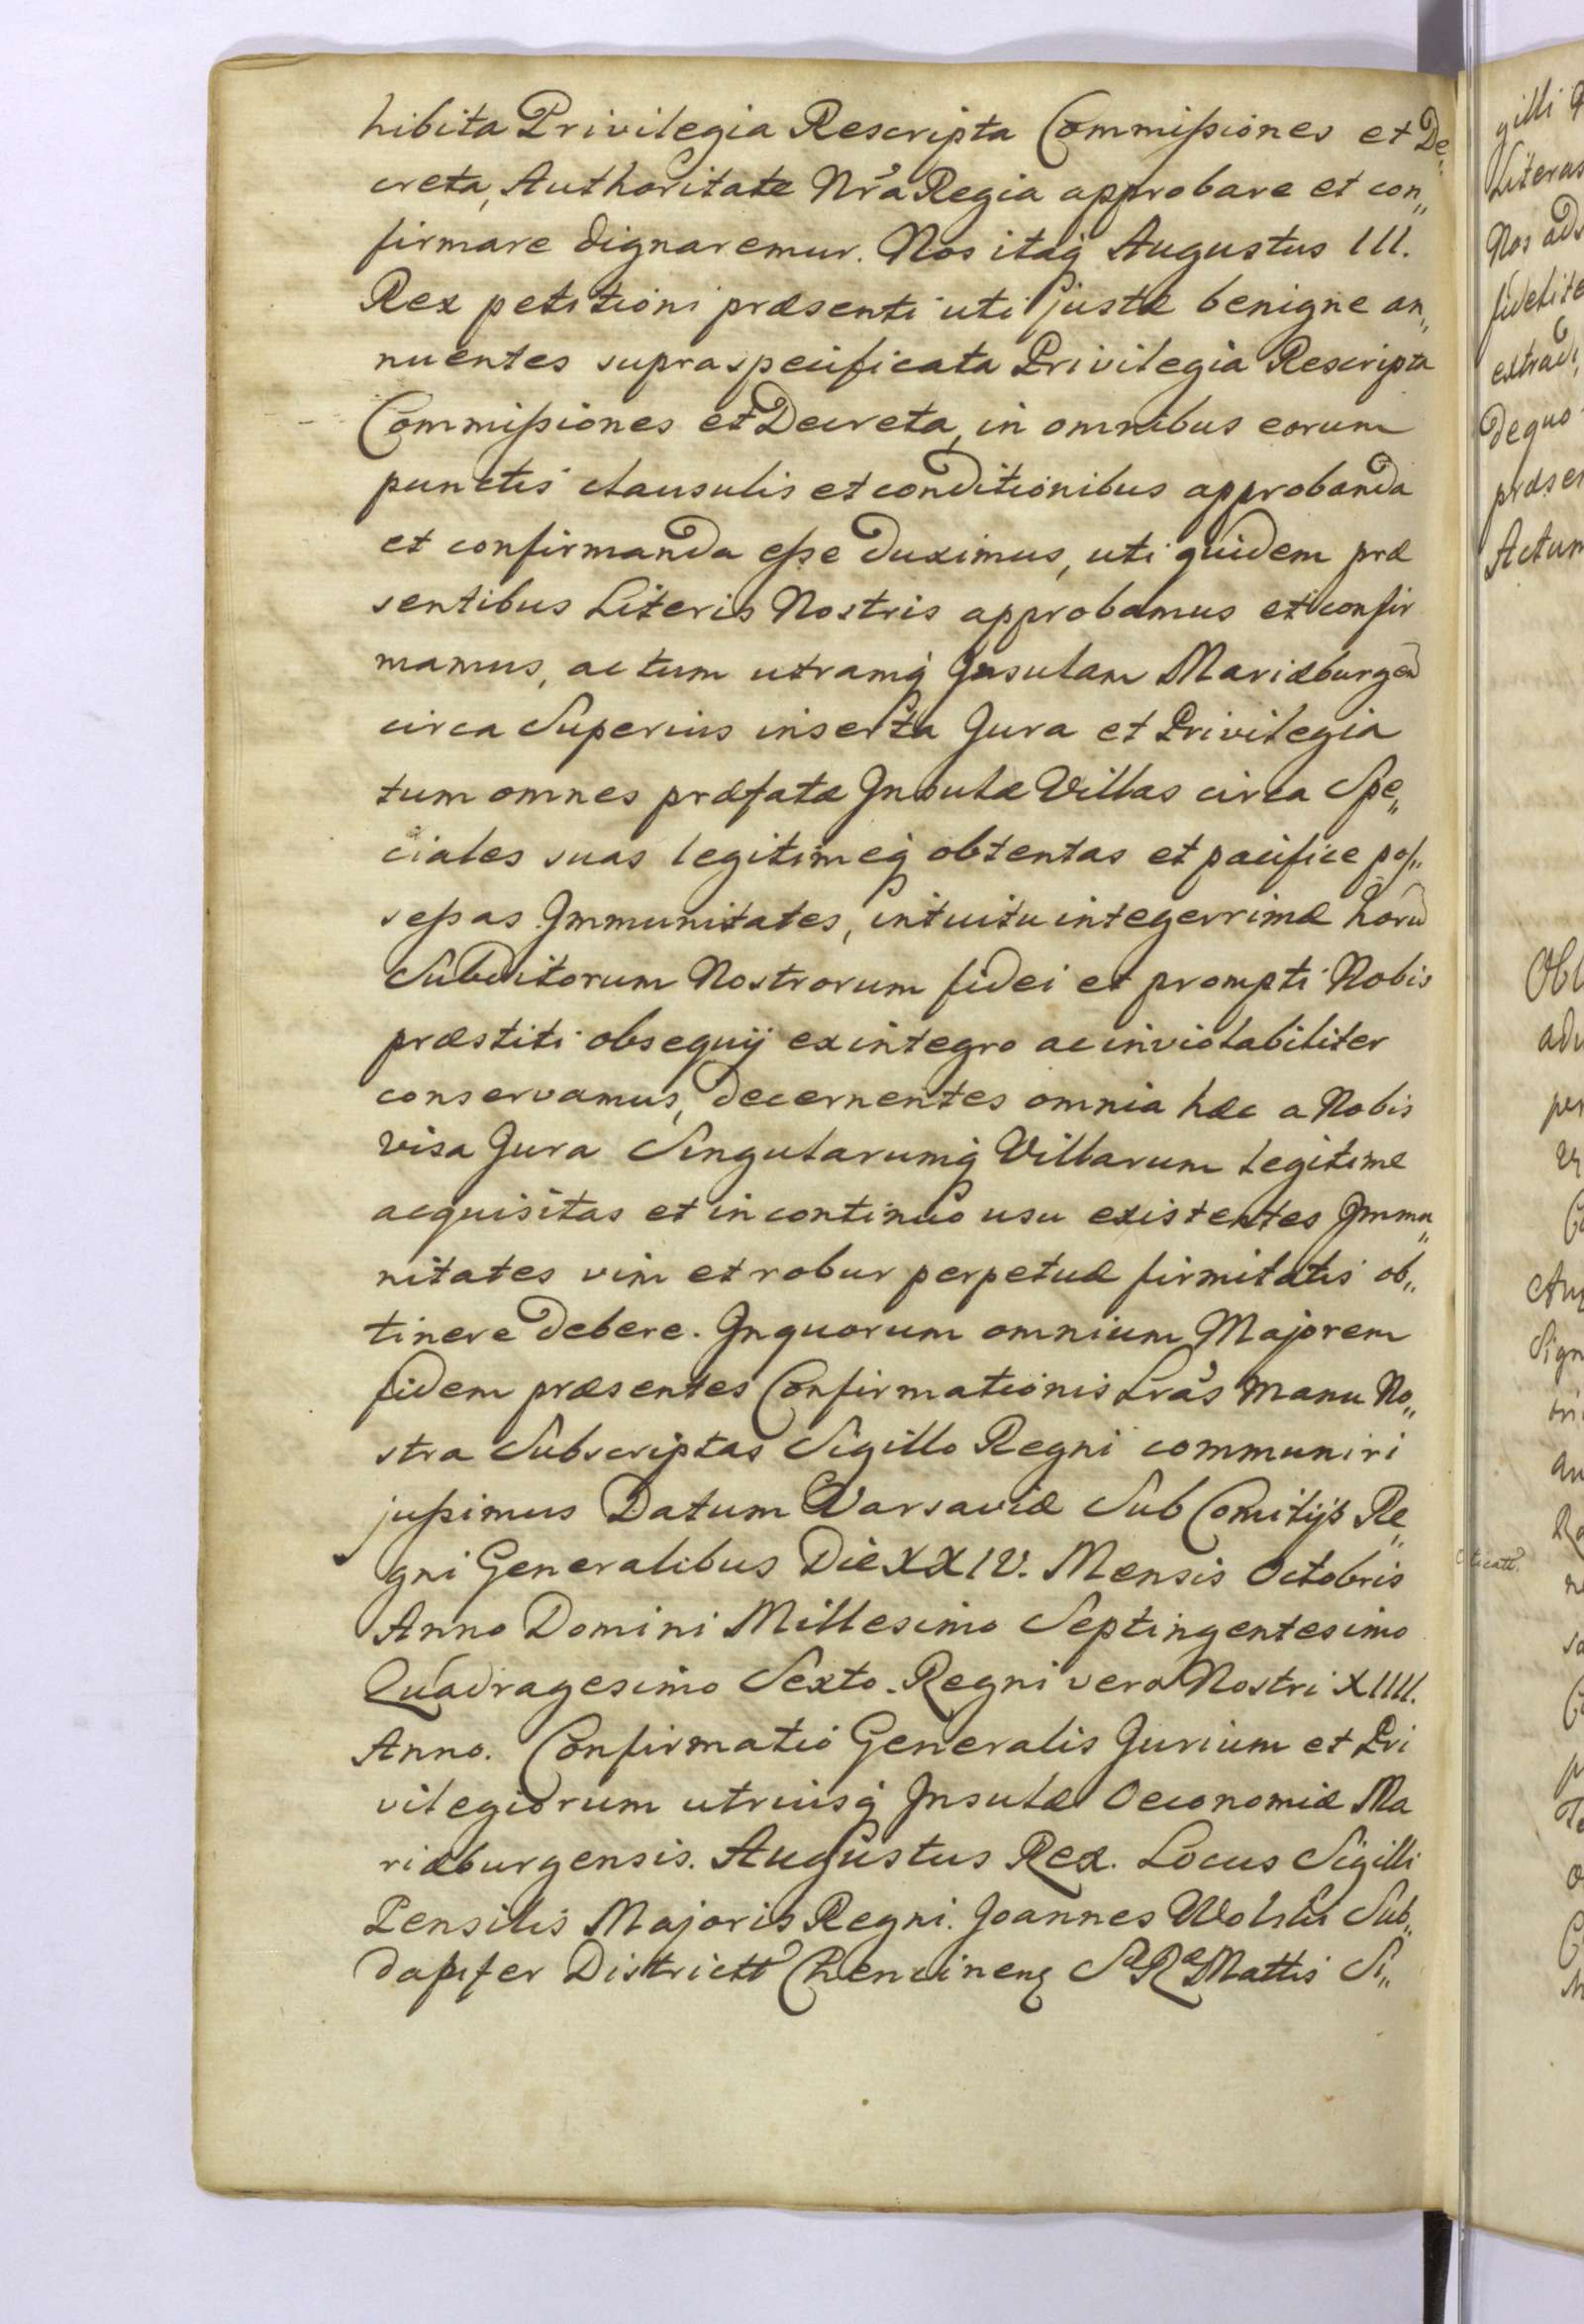 hibita Privilegia Rescripta Commissiones et De„
creta, Authoritate Nr̃a Regia approbare et con„
firmare dignaremur. Nos itaq̷ Augustus III.
Rex petitioni præsenti uti justæ benigne an„
nuentes supraspecificata Privilegia Rescripta
Commissiones et Decreta, in omnibus eorum
punctis clausulis et conditionibus approbanda
et confirmanda esse duximus, uti quidem præ
sentibus Literis Nostris approbamus et confir
mamus, ac tum utramq̷ Insulam Mariæburgen̄
circa Superius inserta Jura et Privilegia
tum omnes præfatæ Insulæ Villas circa Spe„
ciales suas legitimeq̷ obtentas et pacifice pos„
sessas Immunitates, intuitu integerrimæ horū
Subditorum Nostrorum fidei et prompti Nobis
præstiti obsequij ex integro ac inviolabiliter
conservamus, decernentes omnia hæc a Nobis
visa Jura Singularumq̷ Villarum legitime
acquisitas et in continuo usu existentes Immu„
nitates vim et robur perpetuæ firmitatis ob„
tinere debere. In quorum omnium Majorem
fidem præsentes Confirmationis Lr̃as manu No„
stra Subscriptas Sigillo Regni communiri
jussimus Datum Varsaviæ Sub Comitijs Re„
gni Generalibus Die XXIV. Mensis Octobris
Anno Domini Millesimo Septingentesimo
Quadragesimo Sexto. Regni vero Nostri XIIII.
Anno. Confirmatio Generalis Jurium et Pri
vilegiorum utriusq̷ Insulæ Oeconomiæ Ma
riæburgensis. Augustus Rex. Locus Sigilli
Pensilis Majoris Regni. Joannes Wolski Sub„
dapifer Districtt Chencinens Sæ Ræ Mattis Si„
gilli
Literas
Nos
extradi
de quo
Actum